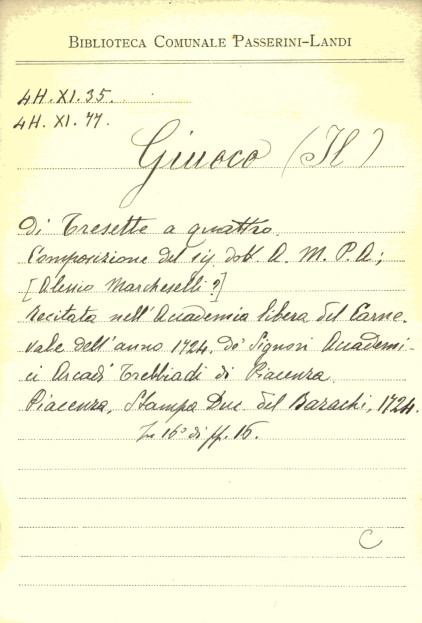 BIBLIOTECA COMUNALE PASSERINI-LANDI
4H. XI. 35.
4H. XI. 77.
Giuoco (Il)
di Tresette a quattro.
Composizione del sig dott. A. M. P. A;
[Alessio Marcheselli?]
recitata nell'Accademia libera del Carne-
vale dell'anno 1724. de' Signori Accademi-
ci Arcadi Trebbiadi di Piacenza.
Piacenza, Stampa Duc del Barachi, 1724.
In 16° di ff. 16.
C